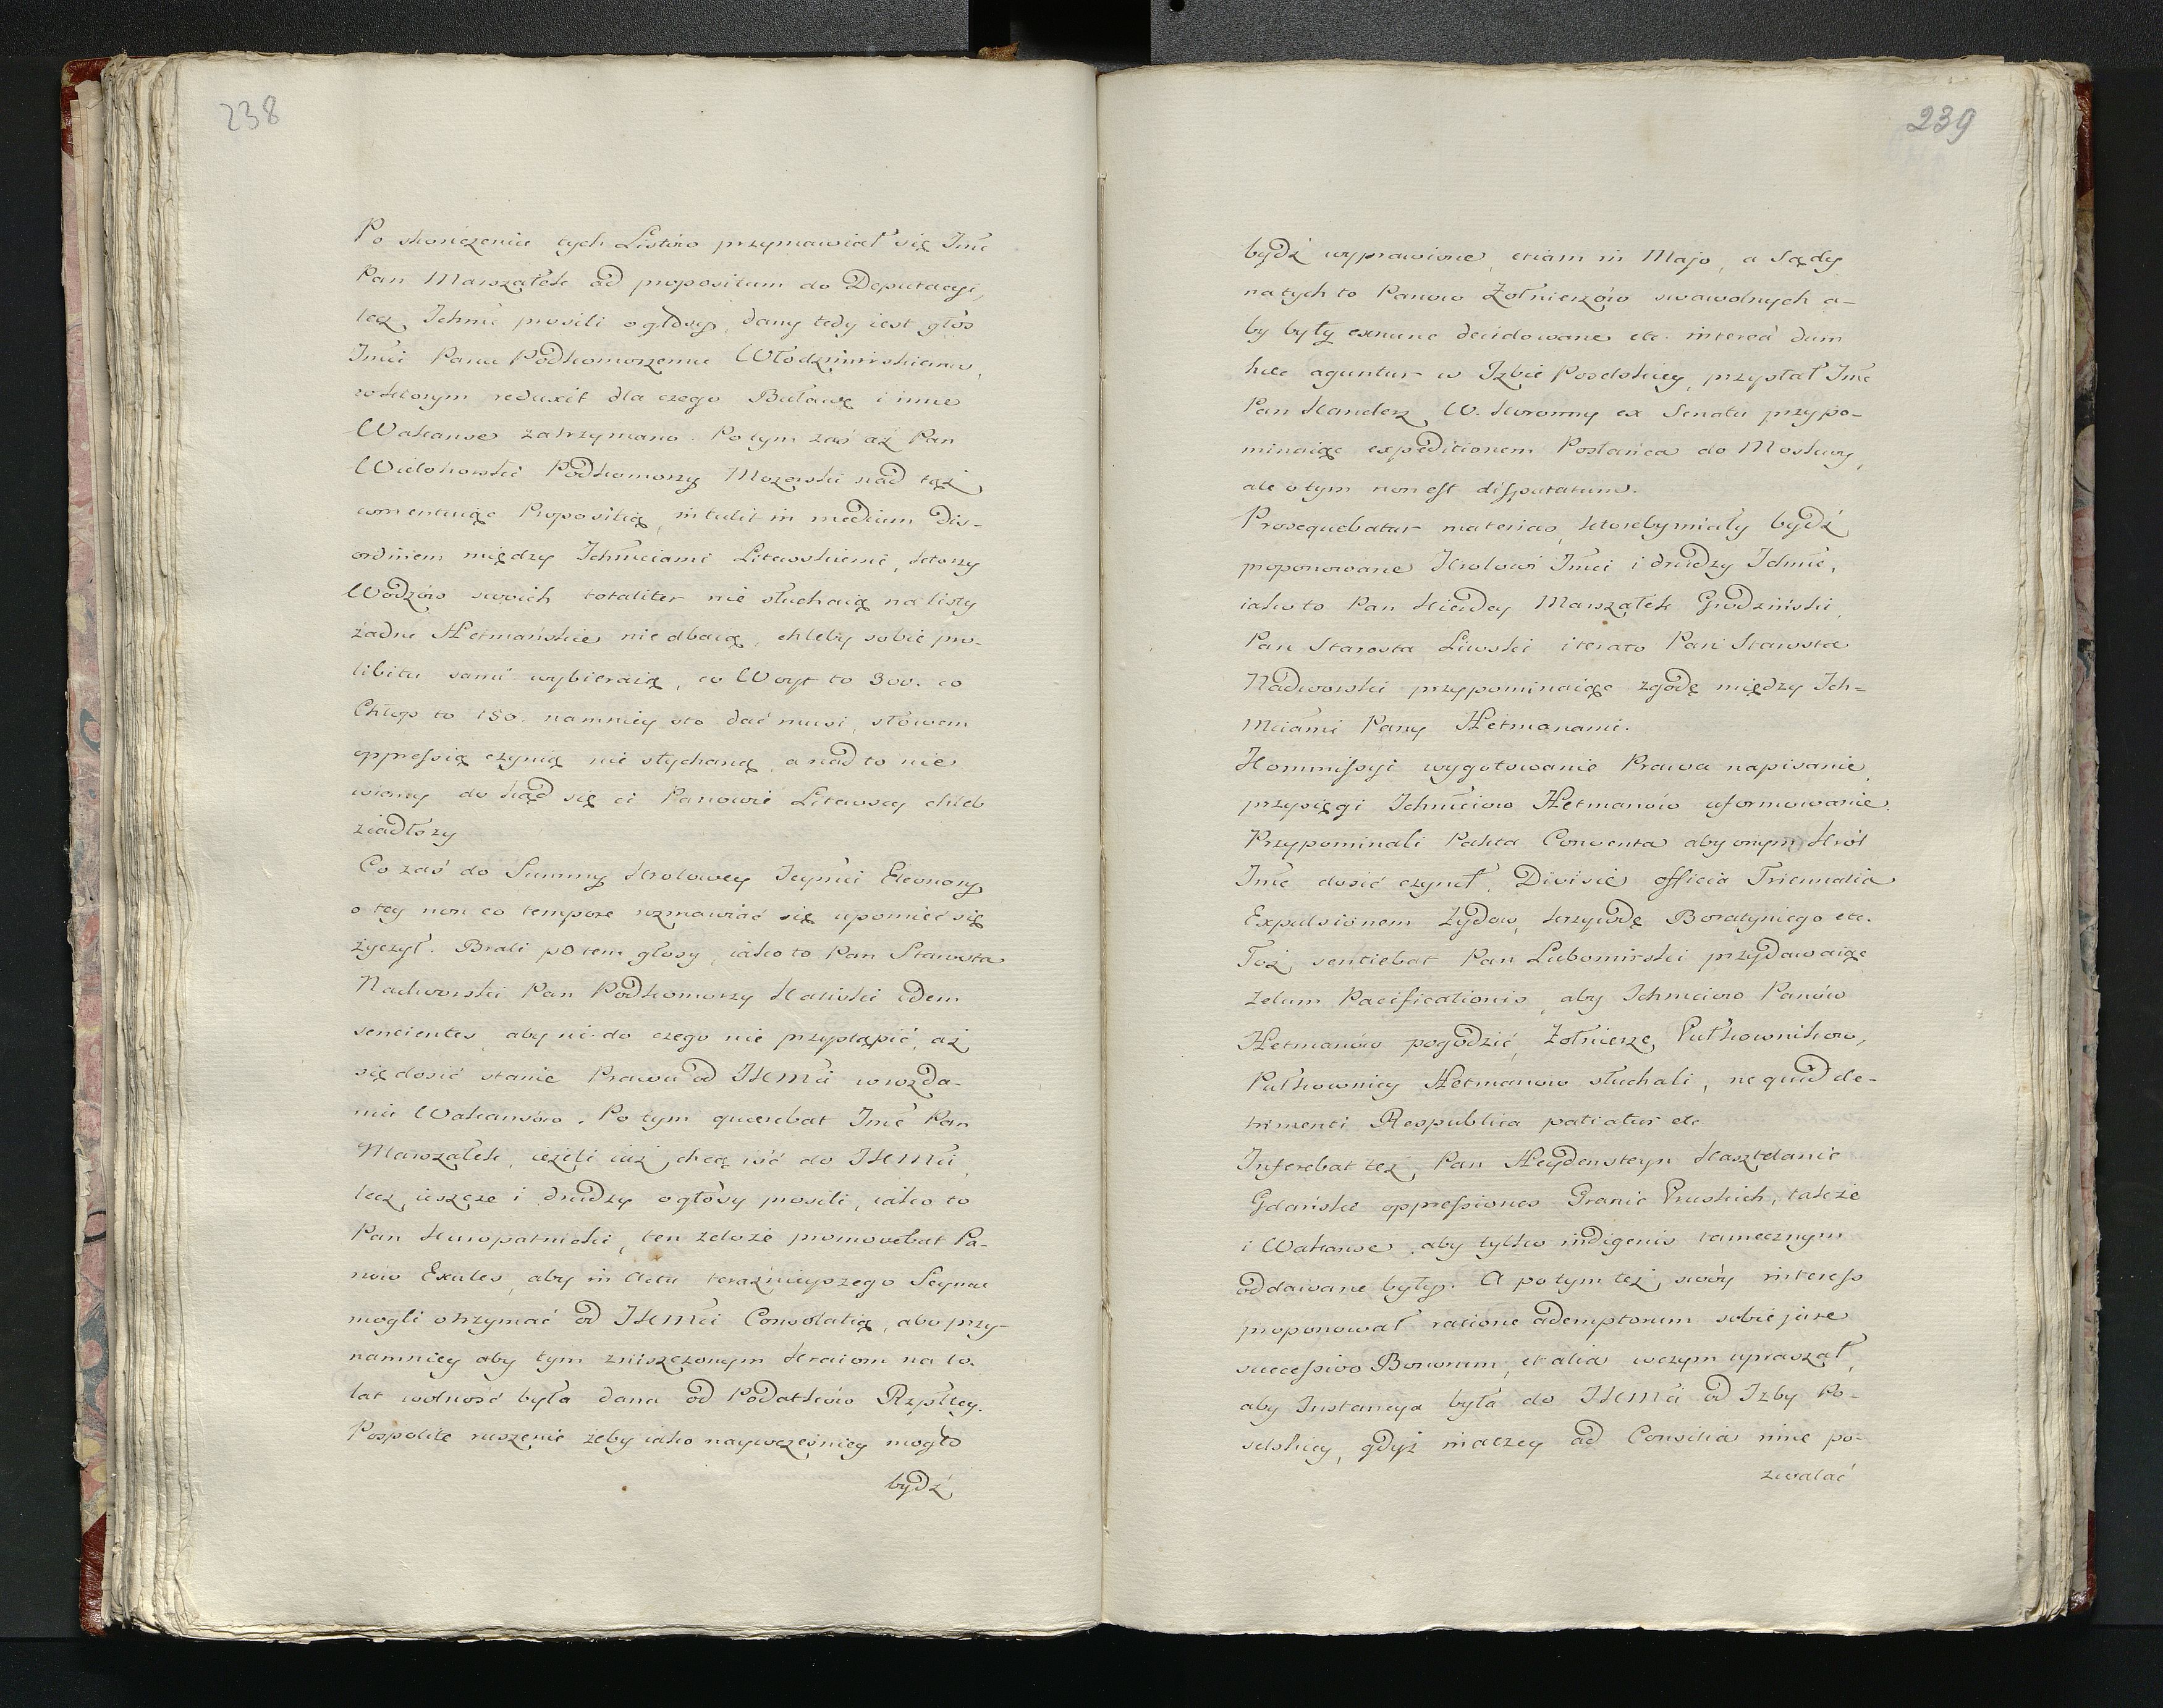 238
Po skończeniu tych Listów przymawiał się Jmć
Pan Marszałek ad propositum do Deputacyi,
lecz Ichmć prosili o głosy, dany tedy iest głos
Jmci Panu Podkomorzemu Włodzimirskiemu,
w którym reduxit dla czego Buławę i inne
Wakanse zatrzymano. Po tym zaś aż Pan
Wielohorski Podkomorzy Mozerski nad tąż
wmentuiąc Propositią, intulit in medium dis-
ordinem między Ichmciami Litewskiemi, ktorzy
Wodzów swoich totaliter nie słuchaią na listy
żadne Hetmańskie nie dbaią, chleby sobie pro-
libitu sami wybieraią, co Woyt to 300. co
Chłop to 150. namniey sto dać musi, słowem
oppressią czynią nie słychaną, a nad to nie
wiemy do kąd się ci Panowie Litewscy chleb
ziadłszy
Co zaś do Summy Krolowey Jeymci Eleonory
o tey non eo tempore wzmawiać się upomieć się
życzył. Brali potem głosy, iako to Pan Starosta
Nadworski Pan Podkomorzy Haliski idem
sencientes, aby ni do czego nie przystąpić, aż
się dosić stanie Prawu od JKMci w rozda-
niu Wakansów. Po tym quaerebat Jmć Pan
Marszałek, ieżeli iuż chcą iść do JKMci,
lecz ieszcze i drudzy o głosy prosili, iako to
Pan Kuropatnicki, ten zeloże promovebat Pa-
nów Exules, aby in Actu teraznieyszego Seymu
mogli otrzymać od JKMci Consolatią, abo przy-
namniey aby tym zniszczonym Kraiom na 10.
lat wolność była dana od Podatków Rzpltey.
Pospolite ruszenie żeby iako naywcześniey mogło
bydź
239
bydź wyprawione, etiam in Majo, a Sądy
na tych to Panow Żołnierzów swawolnych a-
by były ex nunc decidowane etc. interea dum
haec aguntur w Izbie Poselskiey, przysłał Jmć
Pan Kanclerz W. Koronny ex Senatu przypo-
minaiąc expeditionem Posłańca do Moskwy,
ale o tym non est disputatum.
Prosequebatur materias, ktoreby miały bydź
proponowane Krolowi Jmci i drudzy Ichmć,
iako to Pan Kierdey Marszałek Grodziński,
Pan Starosta Liwski iterato Pan Starosta
Nadworski przypominaiąc zgodę między Ich-
Mciami Pany Hetmanami.
Kommissyi wygotowanie Prawa napisanie,
przysięgi Ichmciow Hetmanów uformowanie.
Przypominali Pakta Conventa aby onym Król
Jmć dosić czynił, Divisie officia Triennalia
Expulsionem Żydow, krzywdę Boratyniego etc.
Toż sentiebat Pan Lubomirski przydawaiąc
Zelum Pacificationis, aby Ichmciow Panów
Hetmanów pogodzić, Żołnierze Pułkownikow,
Pułkownicy Hetmanow słuchali, ne quid de-
trimenti Respublica patiatur etc.
Inferebat też Pan Heydensteyn Kasztelanic
Gdański oppressiones Granic Pruskich, także
i Wakanse, aby tylko indigenis tamecznym
oddawane były. A po tym też swóy interess
proponował ratione ademptorum sobie jure
successivo Bonorum, et alia w czym upraszał,
aby Instancya była do JKMci od Izby Po-
selskiey, gdyż inaczey ad Consilia nie po-
zwalać